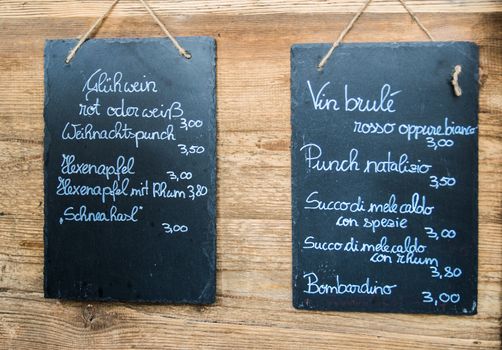 Glühwein
rot oder weiß
3,00
Weihnachtspunch
3,50
Hexenapfel 3,00
Hexenapfel mit Rhum 3,80
„Schneahasl"
3,00
Vin brulé
rosso oppure bianco
3,00
Punch natalizio
3,50
Succo di mele caldo
con spezie
3,00
Succo di mele caldo
con rhum
3,80
Bombardino 3,00